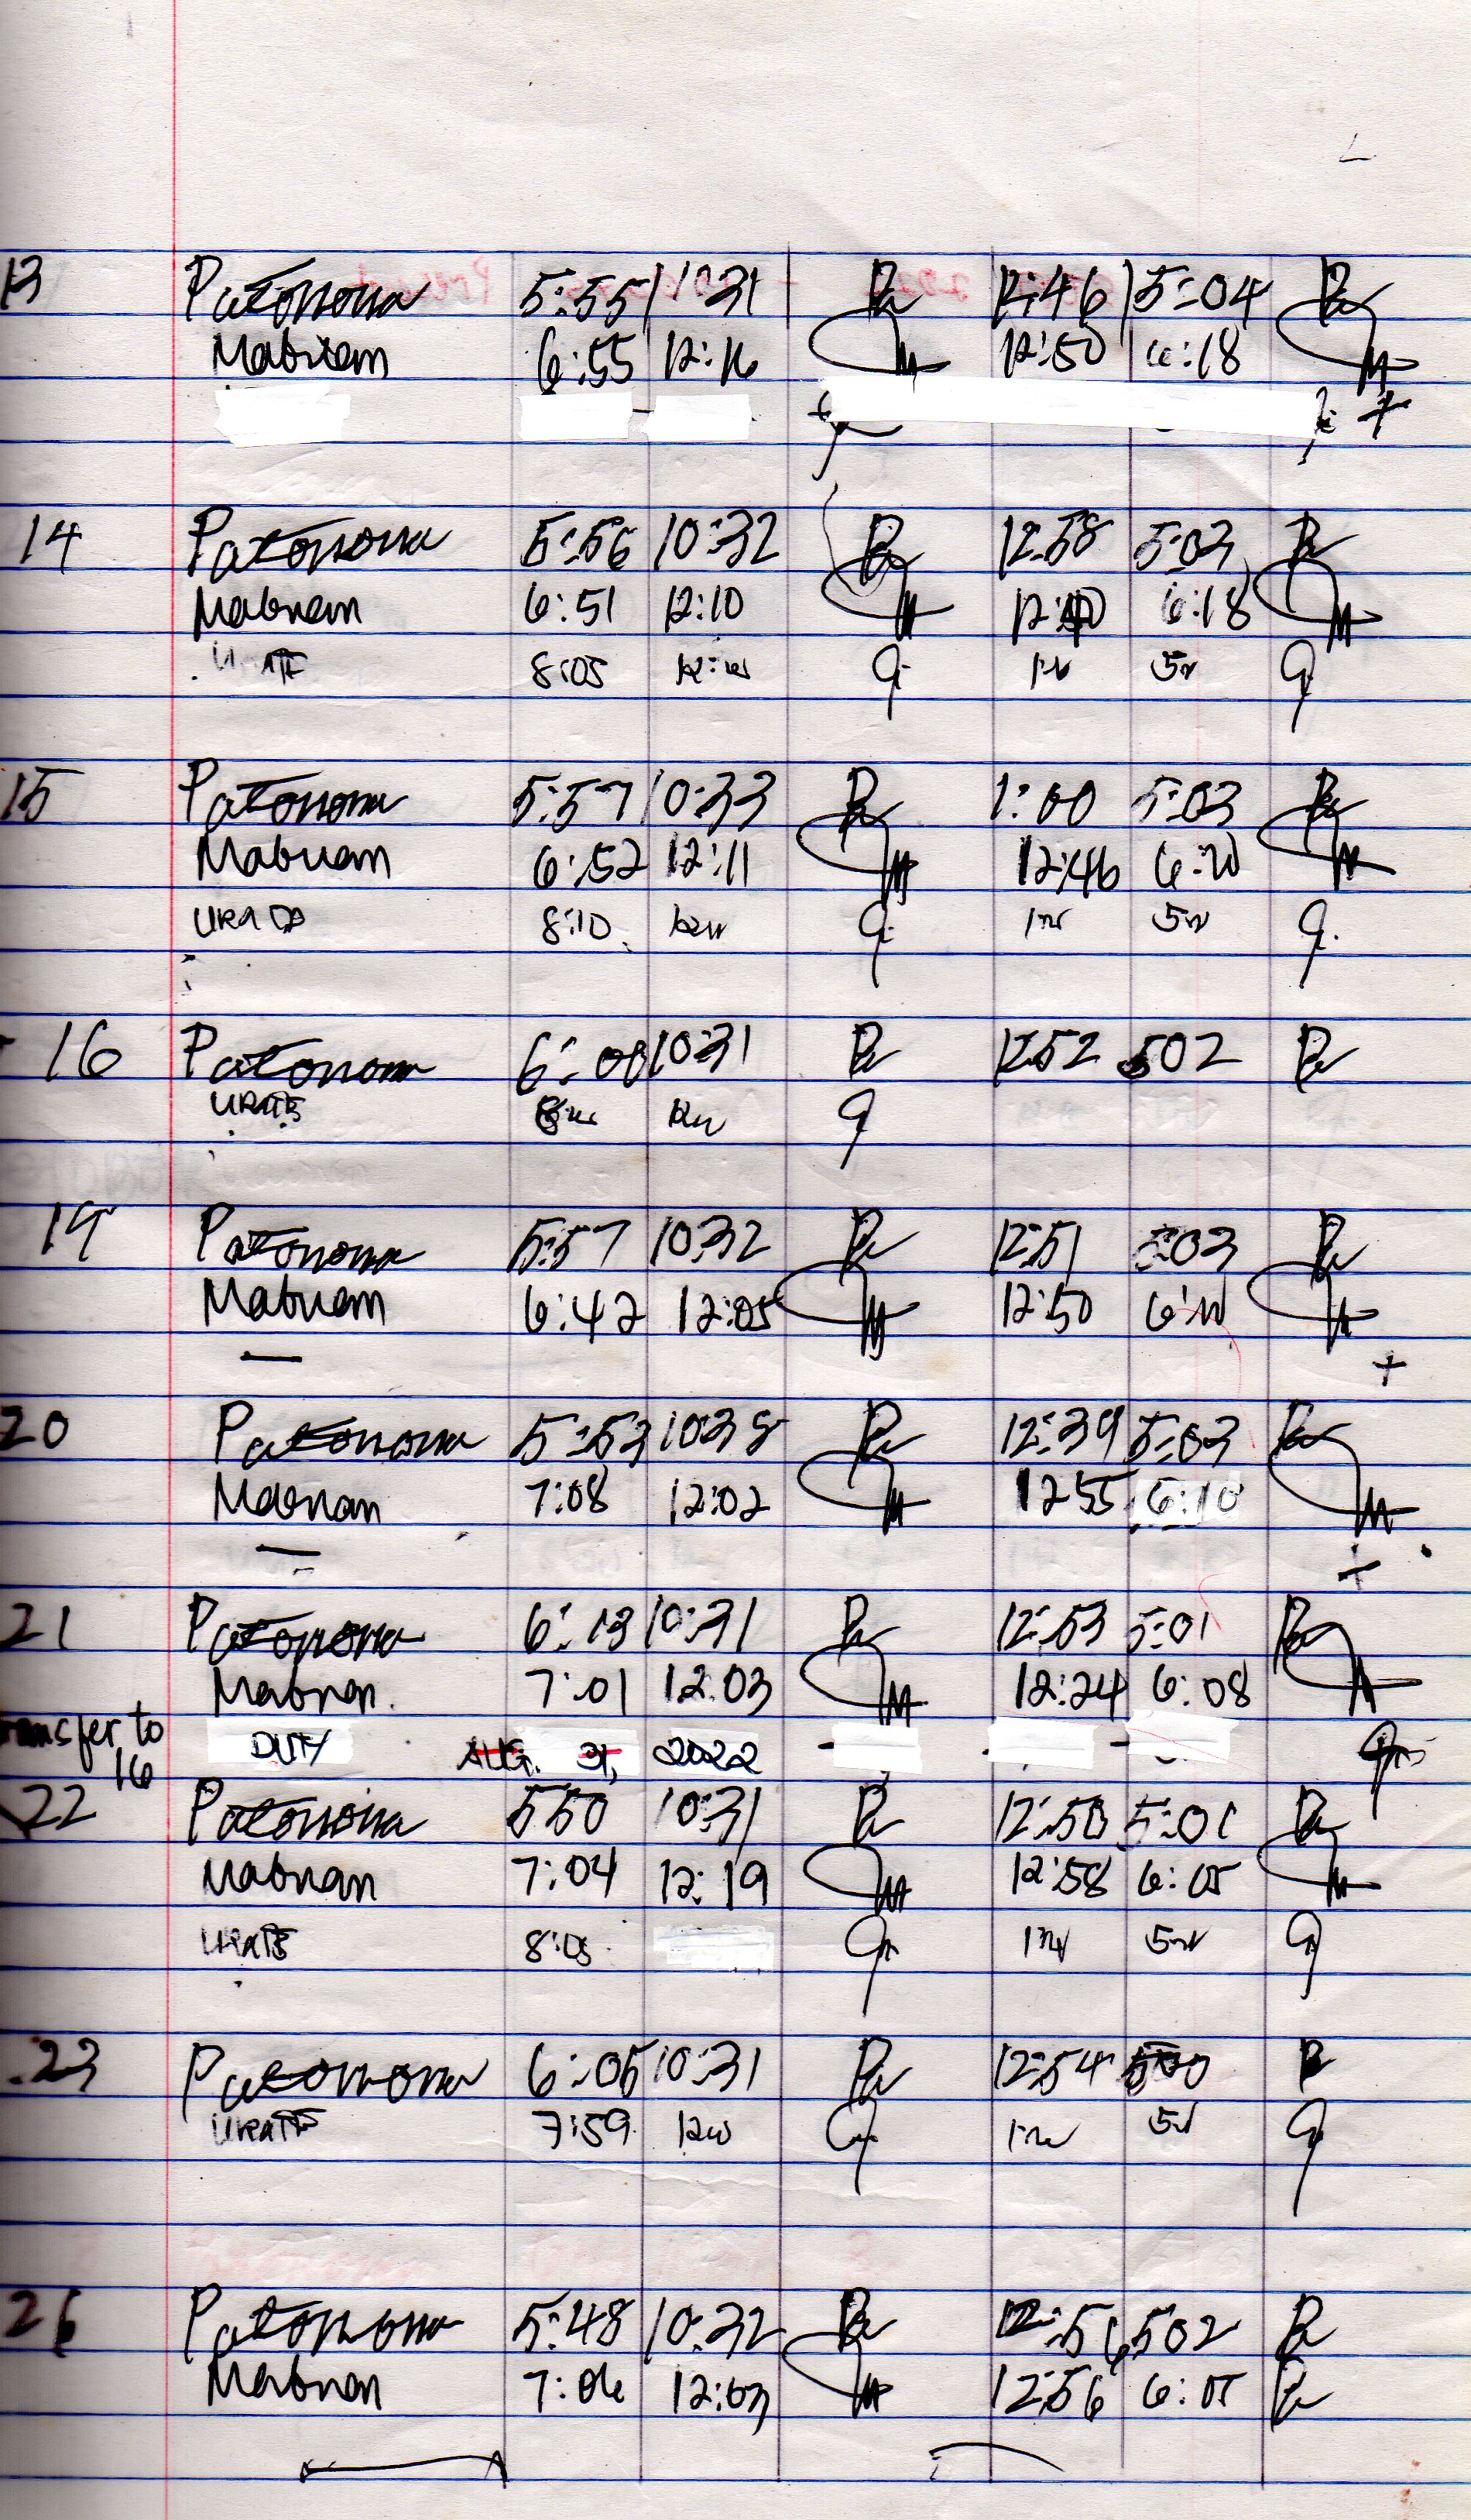 13 Patonona 5:55 10:31 12:46 5:04
Mabuan 6:55 12:16 12:50 6:18
14 Patonona 5:56 10:32 12:58 5:03
Mabuan 6:51 12:10 12:40 6:18
8:05
15 Patonona 5:57 10:33 1:00 5:03
Mabuan 6:52 12:11 12:46 6:20
8:10
16 Patonona 6:00 10:31 12:52 5:02
URATE
19 Patonona 5:57 10:32 12:51 5:03
Mabuan 6:42 12:05 12:50 6:10
20 Patonona 5:53 10:38 12:39 5:03
Mabuan 7:08 12:02 12:55 6:10
21 Patonona 6:13 10:31 12:53 5:01
Mabuan. 7:01 12:03 12:24 6:08
transfer to DUTY AUG. 31, 2022
16
22 Patonona 5:50 10:31 12:50 5:01
Mabuan 7:04 12:19 12:58 6:05
URATE 8:05
23 Patonona 6:05 10:31 12:54 5:00
URATE 7:59
26 Patonona 5:48 10:32 12:56 5:02
Mabuan 7:06 12:03 12:56 6:05